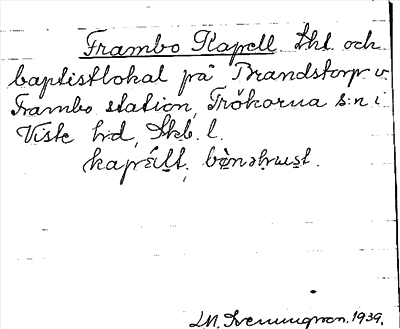 Frambo Kapell. Skl. och
baptistlokal på Brandstorp v.
Frambo station, Trökörna s:n i
Viste hd, Skb. l.
kapǽlt,
LM. Svenungson. 1939.